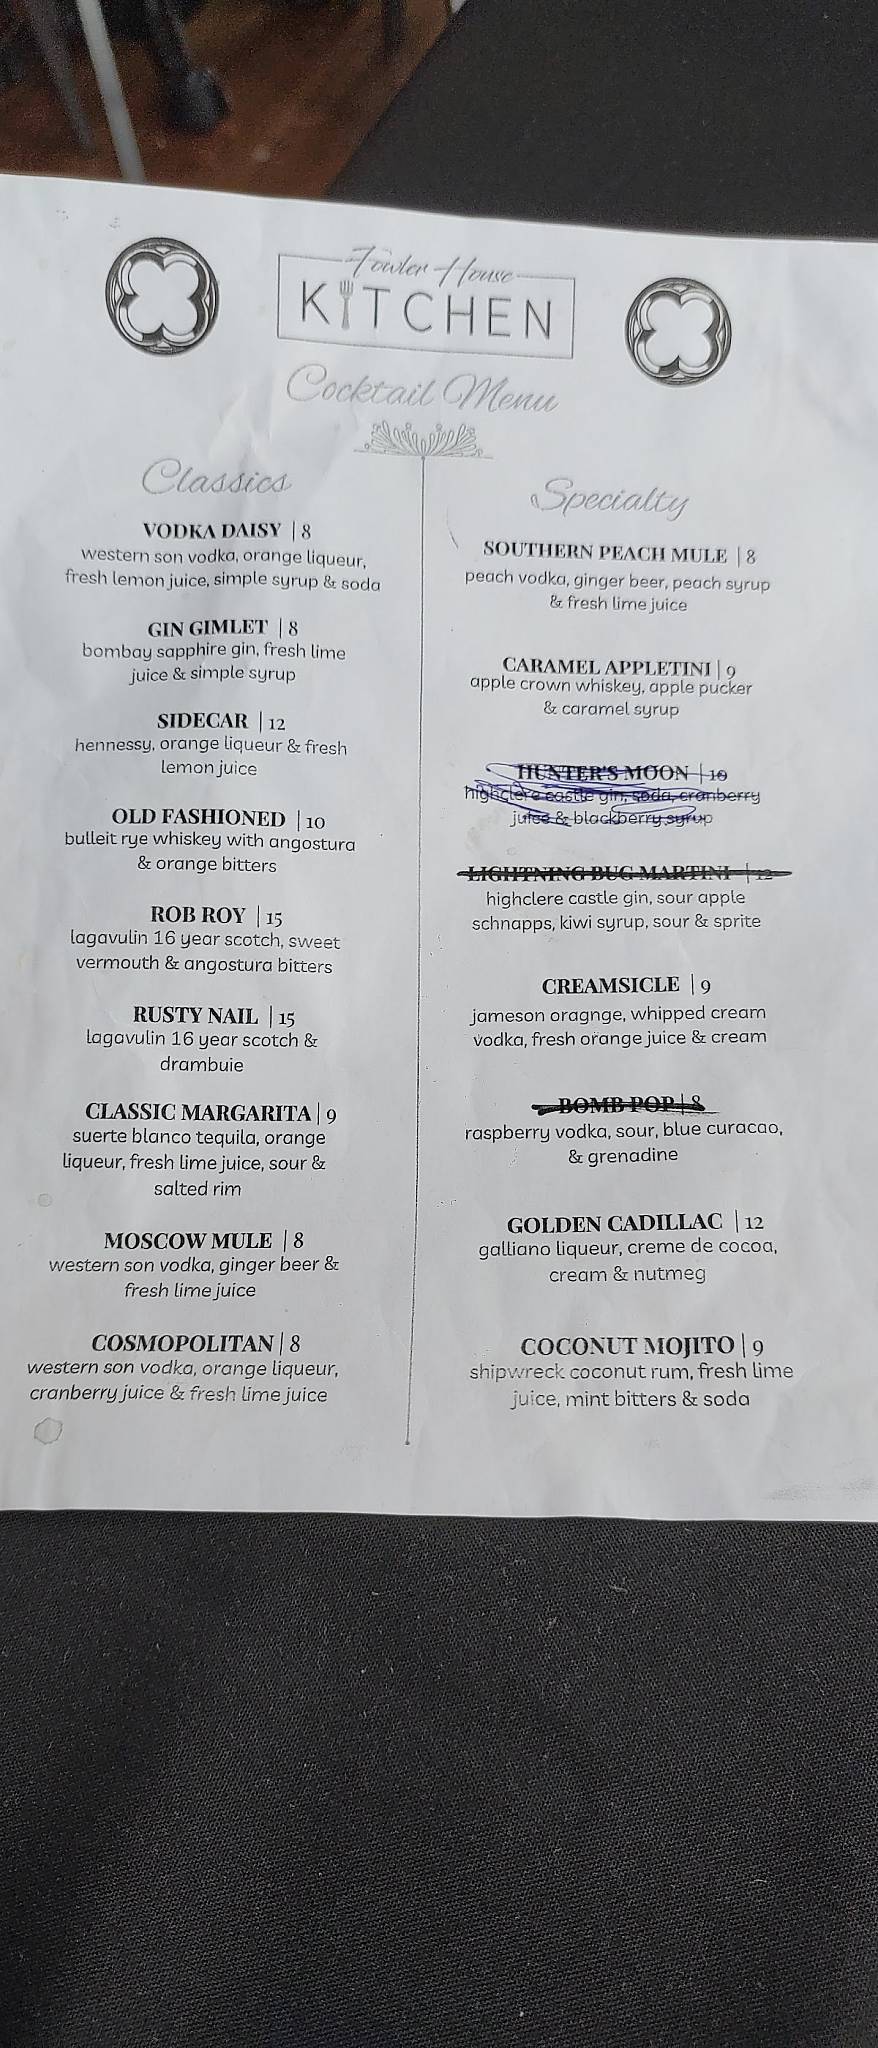 Fowler House
KITCHEN
Cocktail Menu
Classics
VODKA DAISY | 8
western son vodka, orange liqueur,
fresh lemon juice, simple syrup & soda
GIN GIMLET | 8
bombay sapphire gin, fresh lime
juice & simple syrup
SIDECAR | 12
hennessy, orange liqueur & fresh
lemon juice
OLD FASHIONED | 10
bulleit rye whiskey with angostura
& orange bitters
ROB ROY | 15
lagavulin 16 year scotch, sweet
vermouth & angostura bitters
RUSTY NAIL | 15
lagavulin 16 year scotch &
drambuie
CLASSIC MARGARITA | 9
suerte blanco tequila, orange
liqueur, fresh lime juice, sour &
salted rim
MOSCOW MULE | 8
western son vodka, ginger beer &
fresh lime juice
COSMOPOLITAN | 8
western son vodka, orange liqueur,
cranberry juice & fresh lime juice
Specialty
SOUTHERN PEACH MULE | 8
peach vodka, ginger beer, peach syrup
& fresh lime juice
CARAMEL APPLETINI | 9
apple crown whiskey, apple pucker
& caramel syrup
HUNTER'S MOON | 10
highclere castle gin, soda, cranberry
juice & blackberry syrup
LIGHTNING BUG MARTINI | 12
highclere castle gin, sour apple
schnapps, kiwi syrup, sour & sprite
CREAMSICLE | 9
jameson oragnge, whipped cream
vodka, fresh orange juice & cream
BOMB POP | 8
raspberry vodka, sour, blue curacao,
& grenadine
GOLDEN CADILLAC | 12
galliano liqueur, creme de cocoa,
cream & nutmeg
COCONUT MOJITO | 9
shipwreck coconut rum, fresh lime
juice, mint bitters & soda